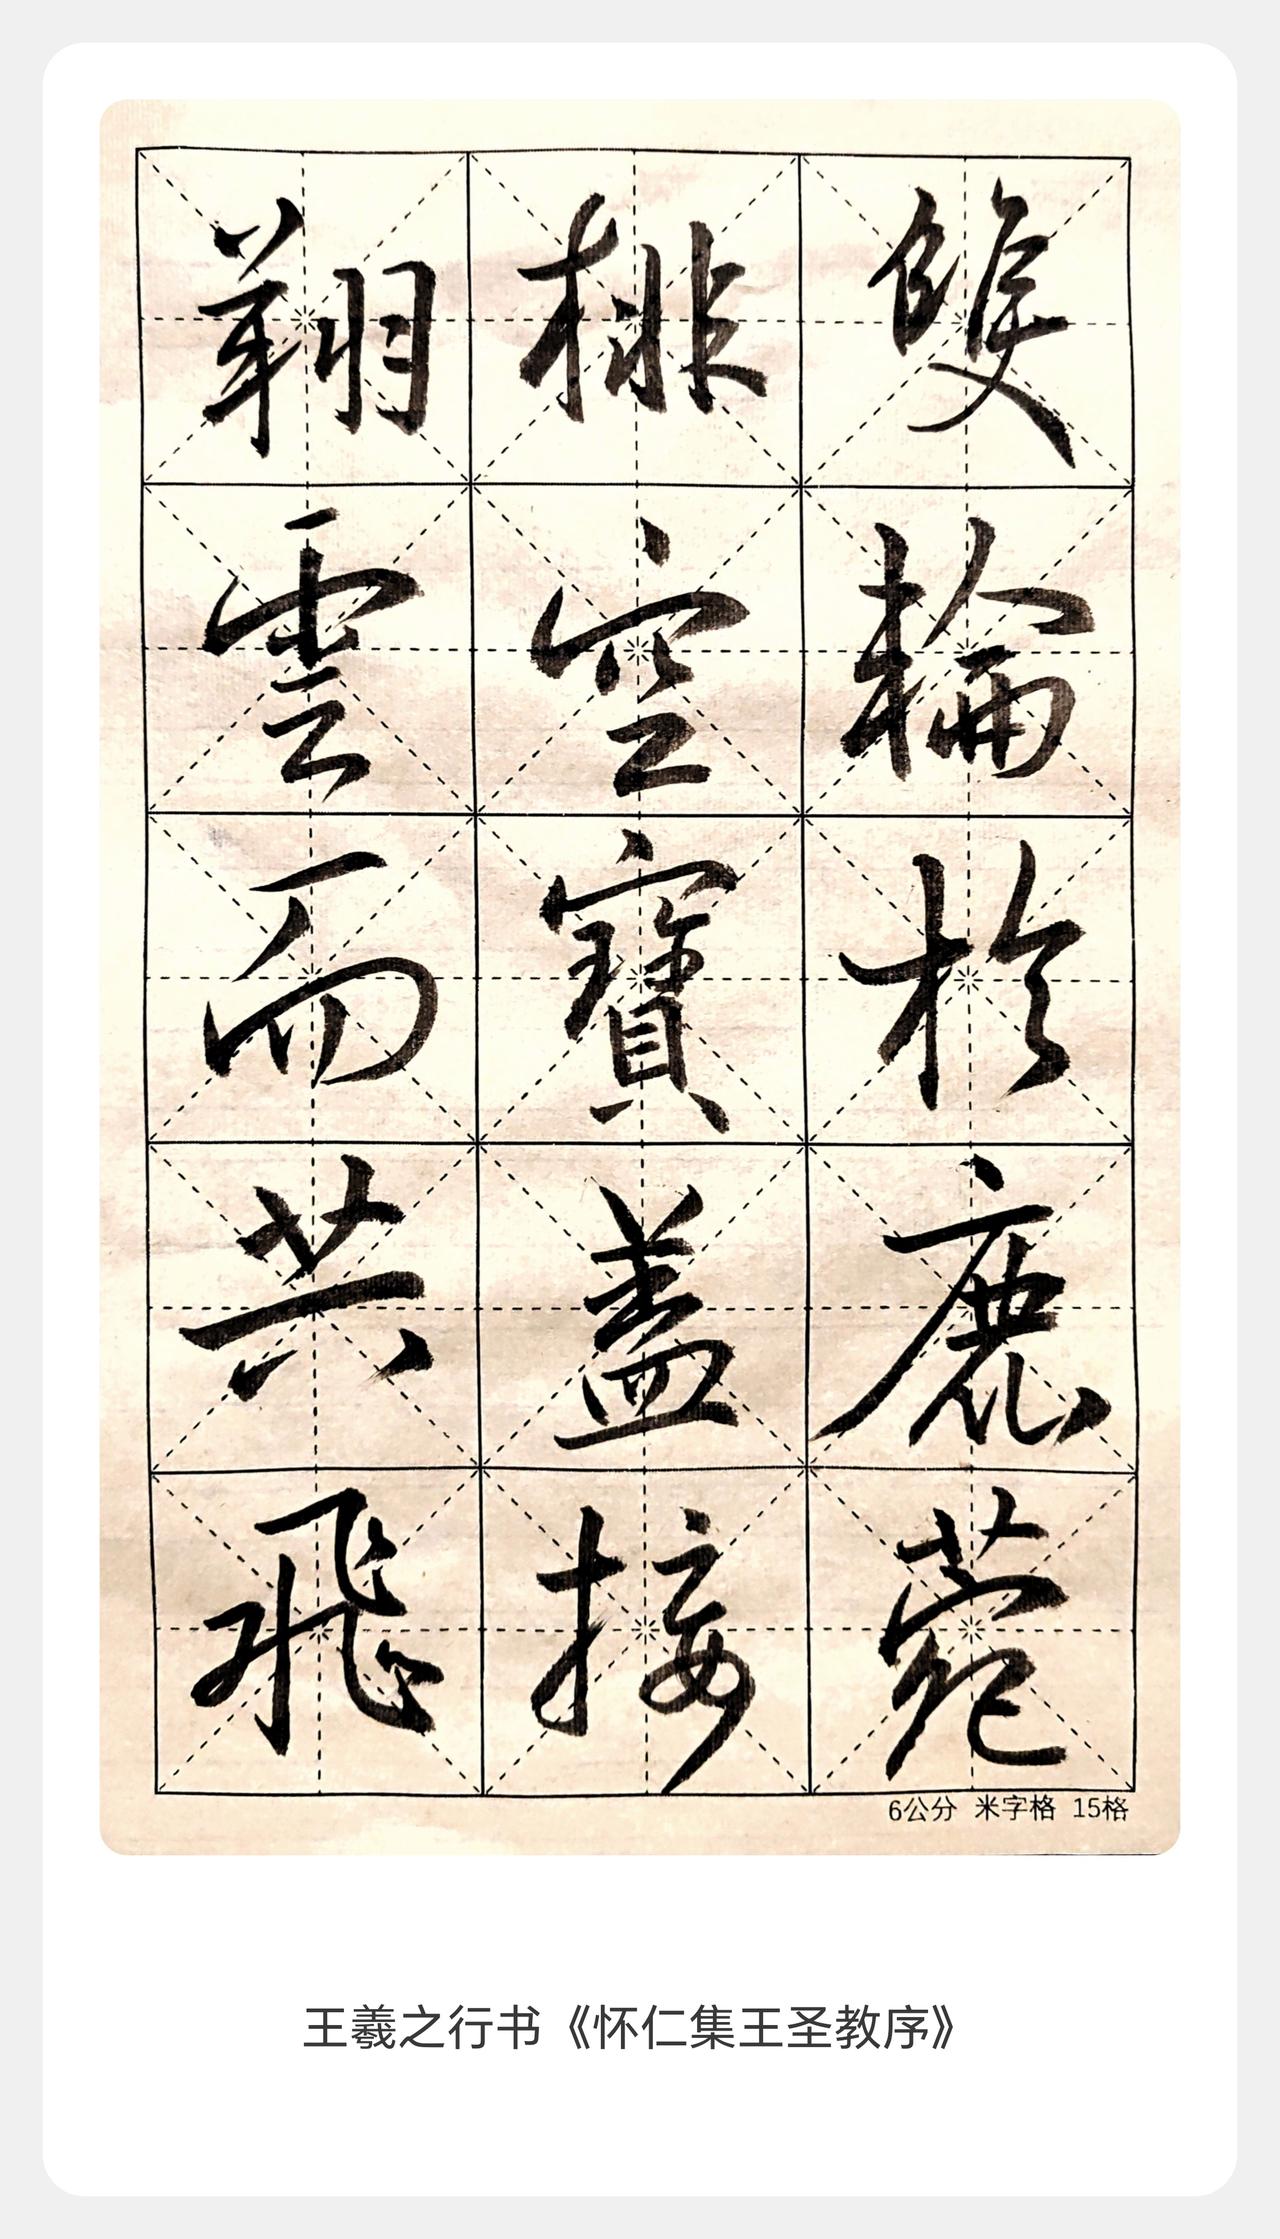 雙輪於鹿菀
排空寶蓋接
翔雲而共飛
6公分 米字格 15格
王羲之行书《怀仁集王圣教序》